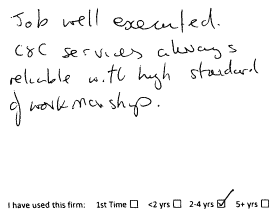 Job well executed.
C&C services always
reliable with high standard
of workmanship.
I have used this firm: 1st Time ☐ <2 yrs ☐ 2-4 yrs ☑ 5+ yrs ☐